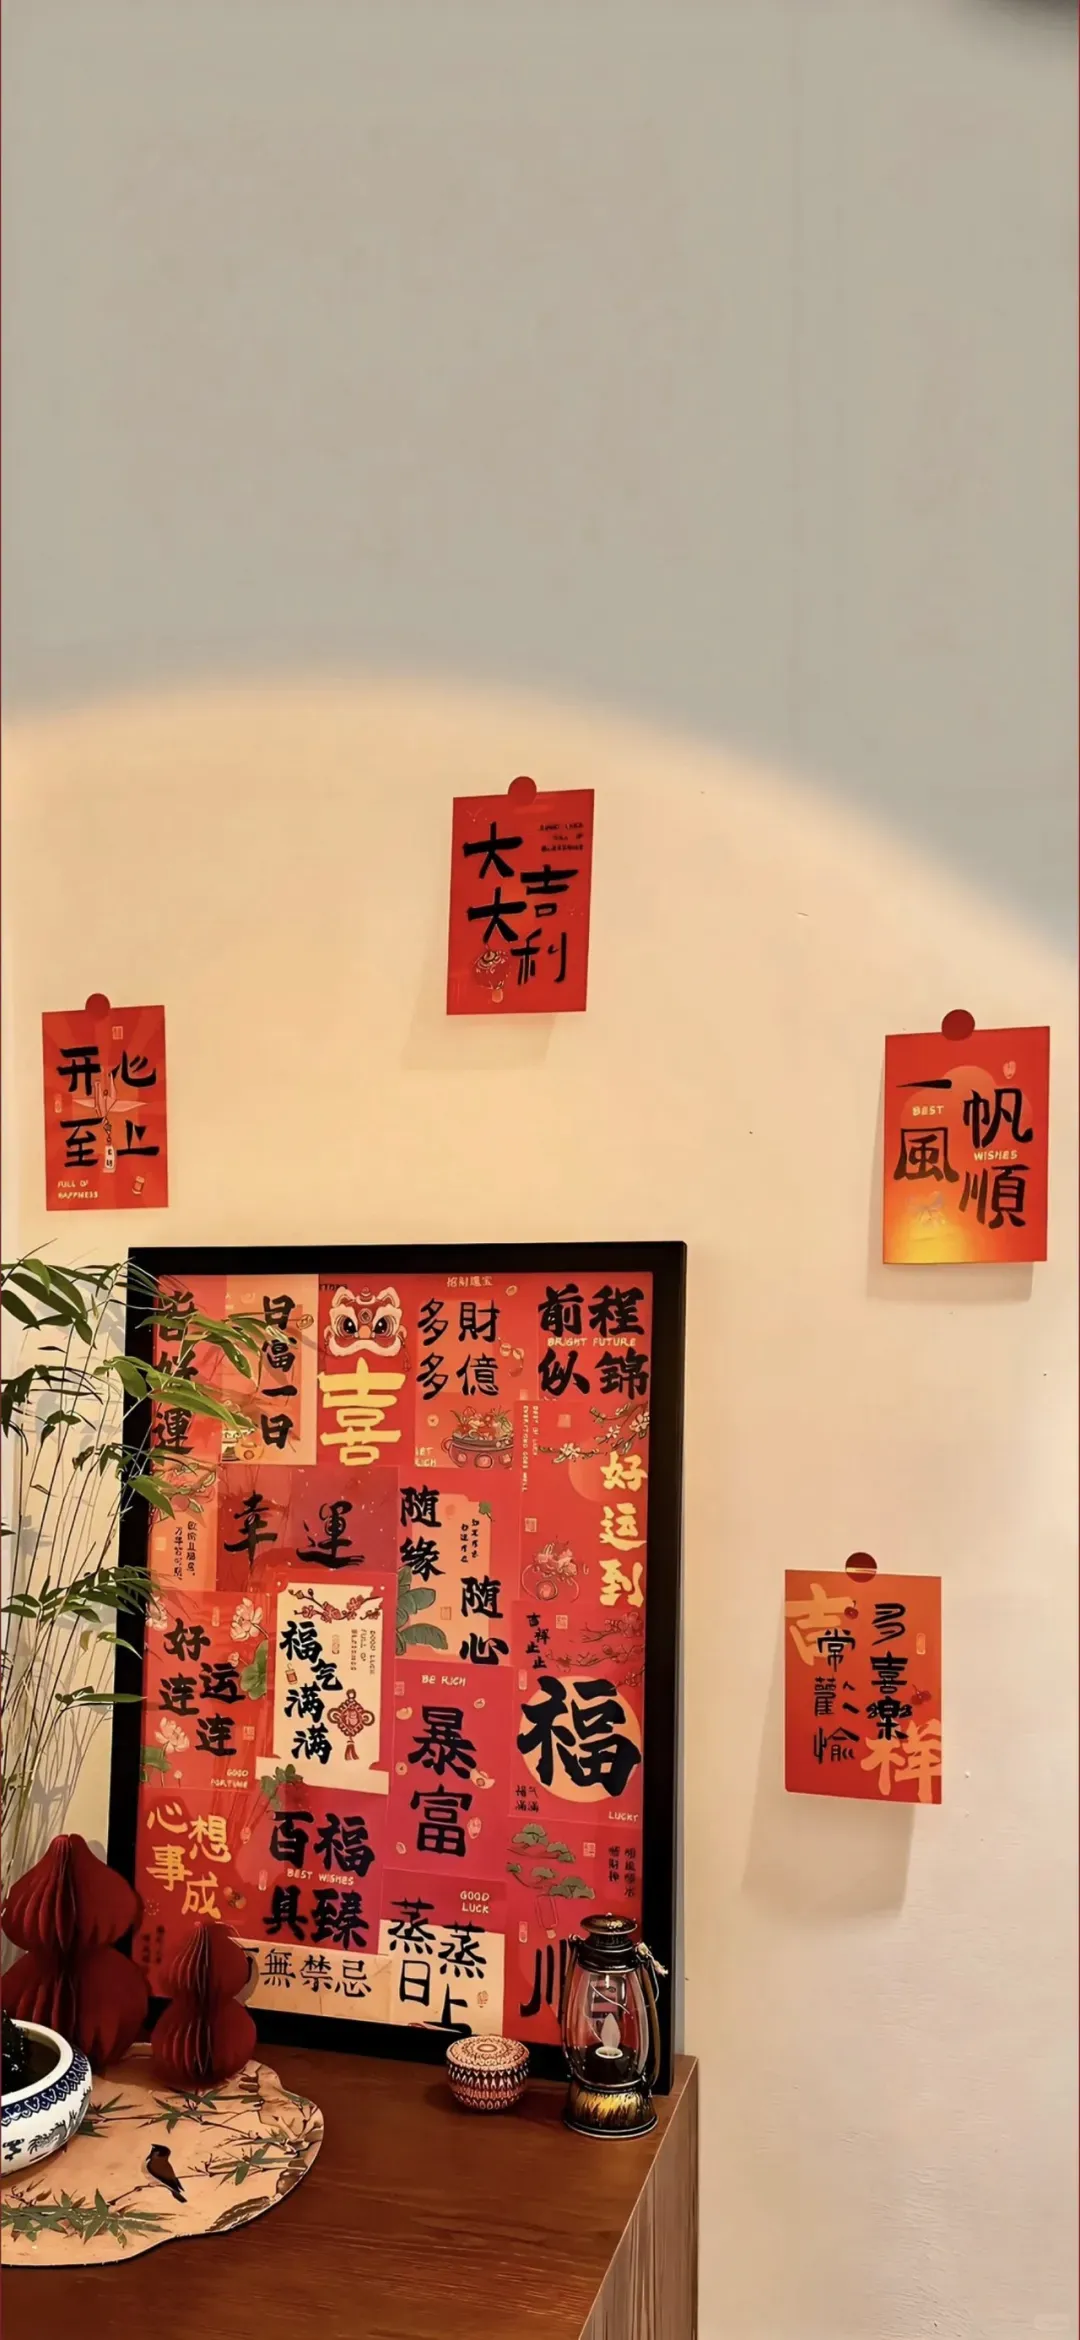 大吉
大利
开心
至上
FULL OF
HAPPINESS
一帆
BEST
風順
WISHES
吉祥
多喜樂
常懽愉
皆
好
運
日富一日
喜
招财進宝
多財
多億
前程
BRIGHT FUTURE
似錦
好运到
幸運
随缘
随心
好运
连连
GOOD
FORTUNE
福气
满满
GOOD LUCK
FULL OF
BE RICH
暴富
吉祥止止
福
LUCKY
心想
事成
百福
BEST WISHES
具臻
無禁忌
GOOD
LUCK
蒸蒸
日上
順